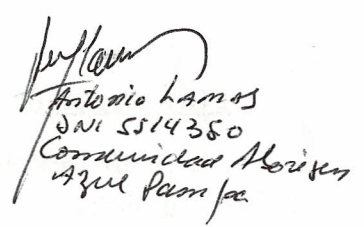 Antonio LAMAS
DNI 5514380
Comunidad Aborigen
Azul Pampa